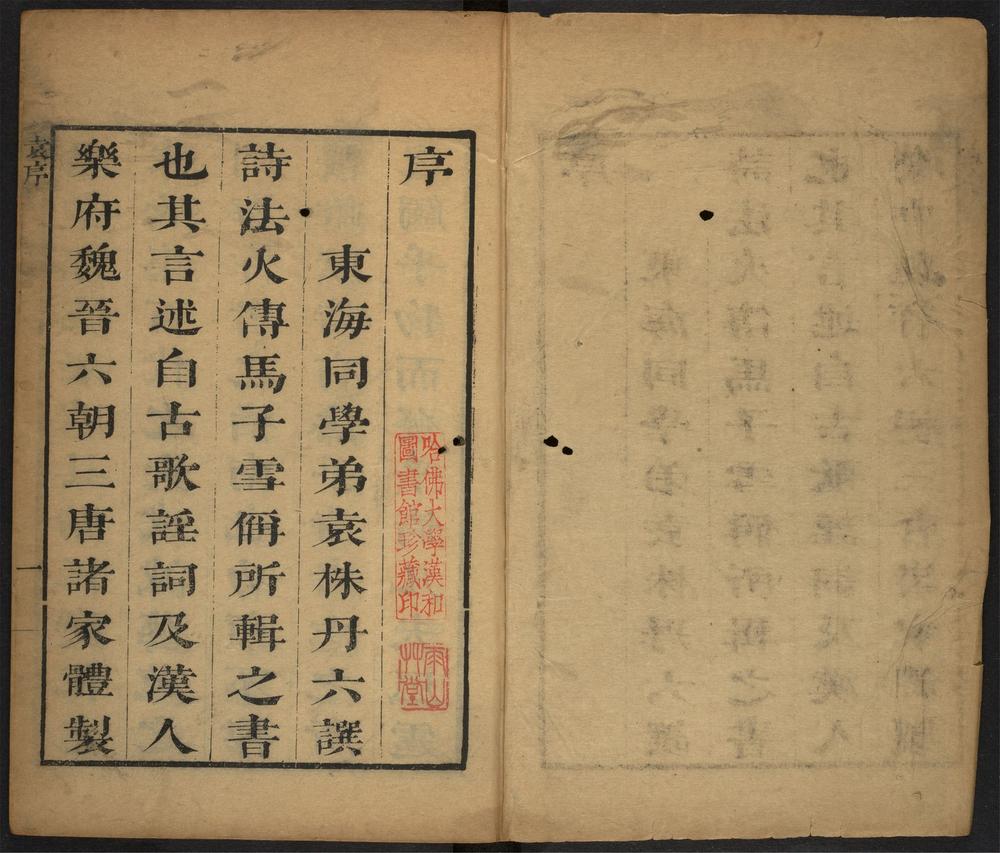 序
東海同學弟袁株丹六譔
詩法火傳馬子雪偁所輯之書
也其言述自古歌謡詞及漢人
樂府魏晉六朝三唐諸家體製
袁序
一
哈佛大學漢和
圖書館珍藏印